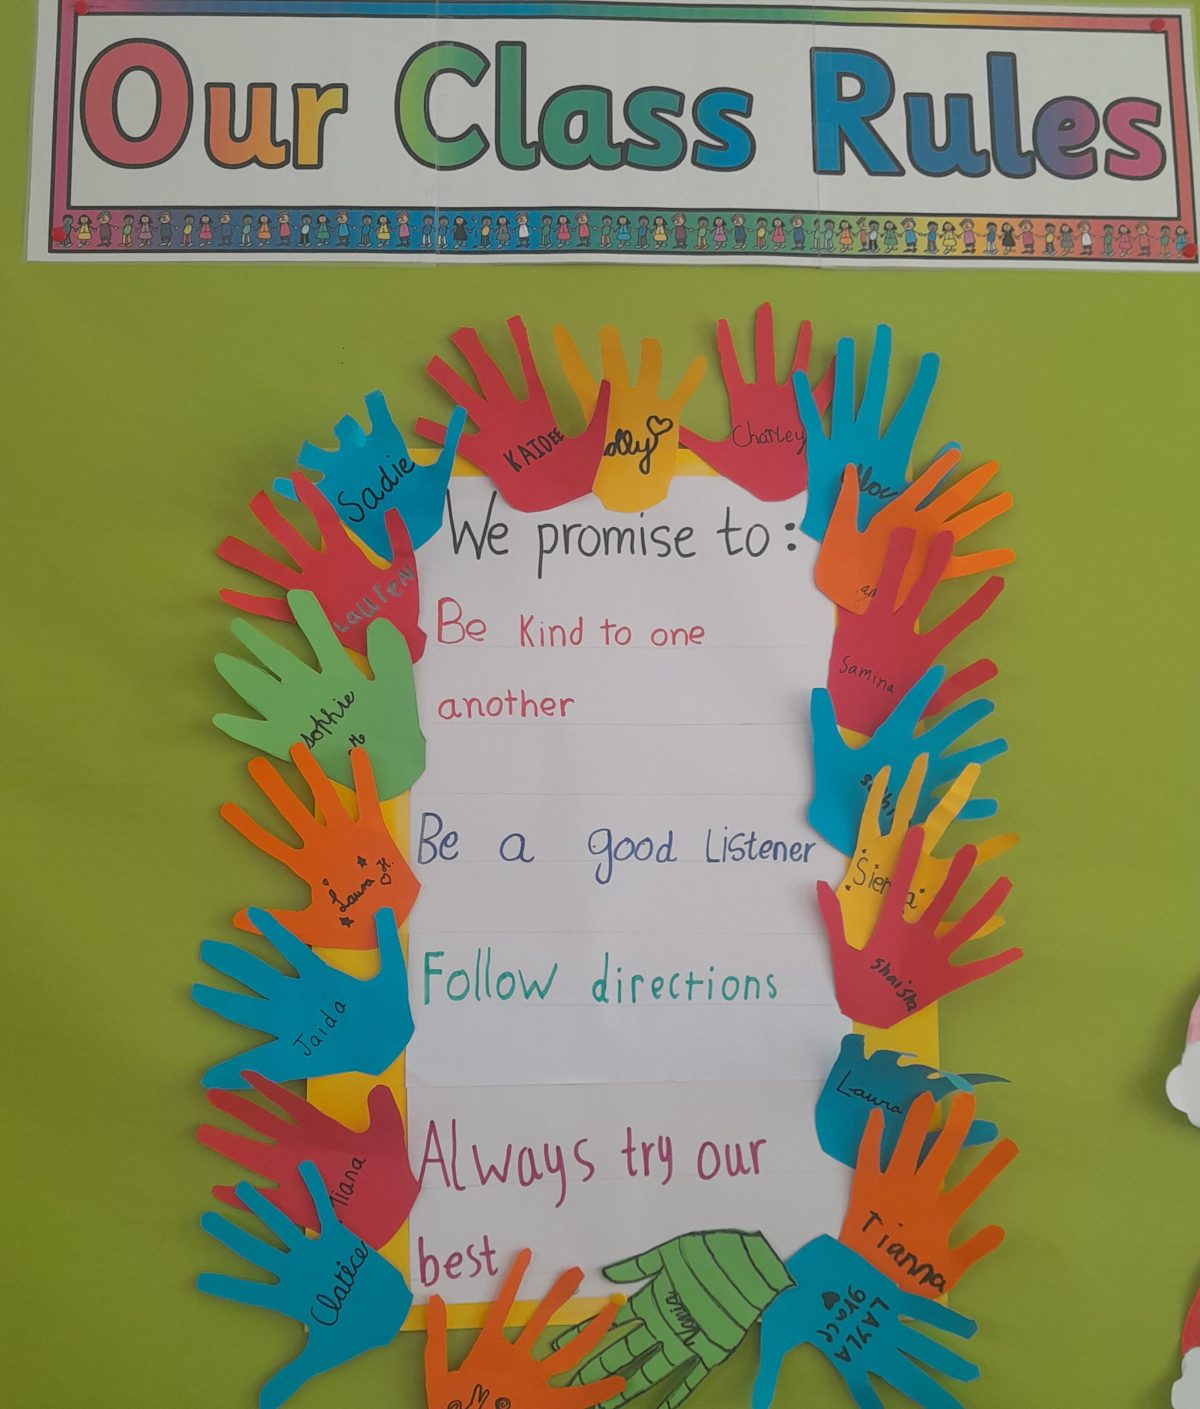 Our Class Rules
KAIDEE
Charley
Sadie
We promise to:
Lauren
Be Kind to one
Samina
another
Sophie
M
Be a good Listener
Laura H.
Shaista
Follow directions
Jaida
Laura
Always try our
Tianna
best
LAYLA
grace